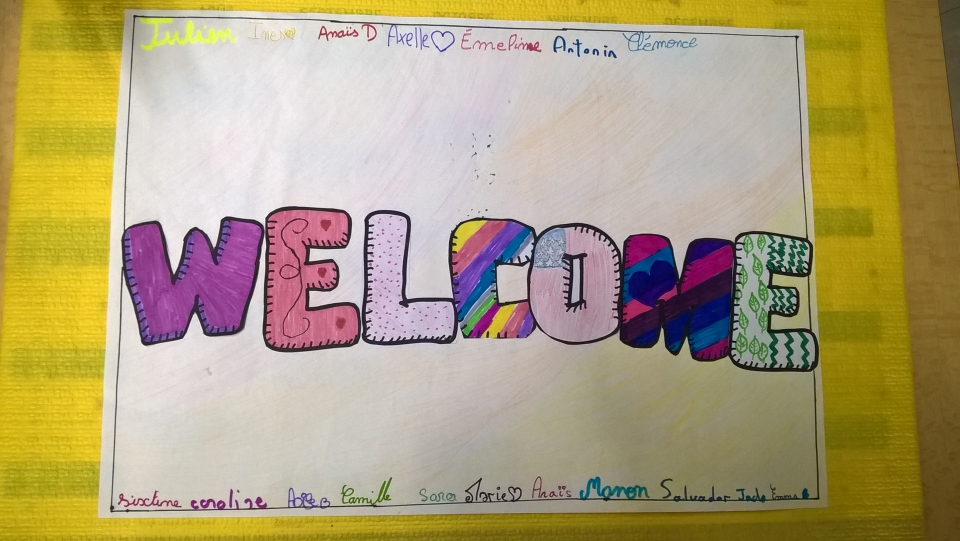 Julien Ines Anaïs D Axelle Émeline Antonin Clémence
WELCOME
Sixtine caroline Camille Sara Marie Anaïs Manon Salvador Jade Emma